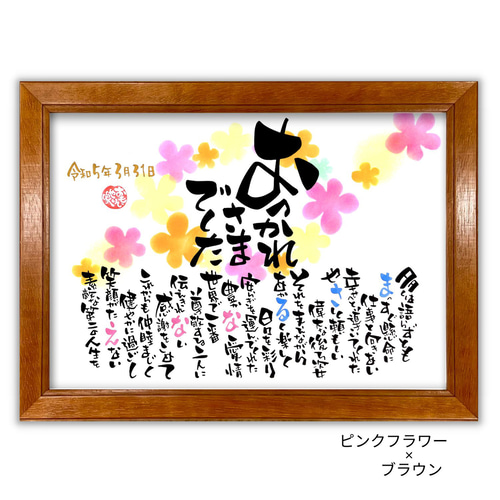 令和5年3月31日
おつかれ
さま
でした
多くは語らずとも
まっすぐ懸命に
仕事と向きあい
幸せを
やさしく頼もしい
偉大な後ろ姿
あかるく楽しく
日々を彩り
安らぎ運んでくれた
豊かな愛情
世界で一番
尊敬する二人に
伝えきれない
感謝をこめて
これからも仲睦まじく
健やかに過ごし
笑顔がたえない
素敵な第二の人生を
ピンクフラワー
×
ブラウン